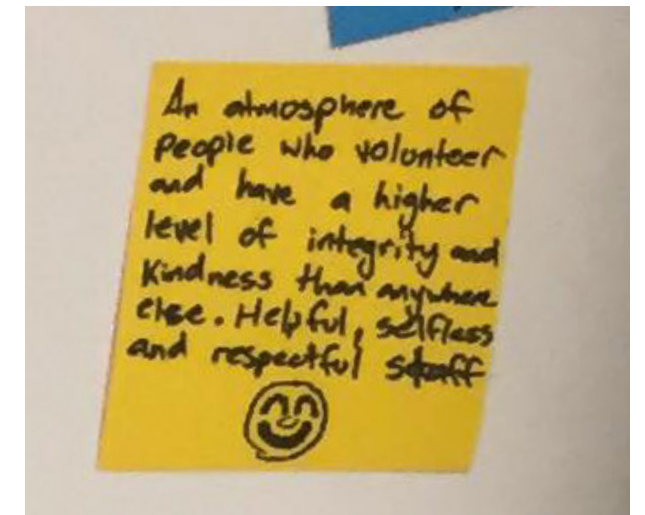 An atmosphere of
people who volunteer
and have a higher
level of integrity and
Kindness than anywhere
else. Helpful, selfless
and respectful staff